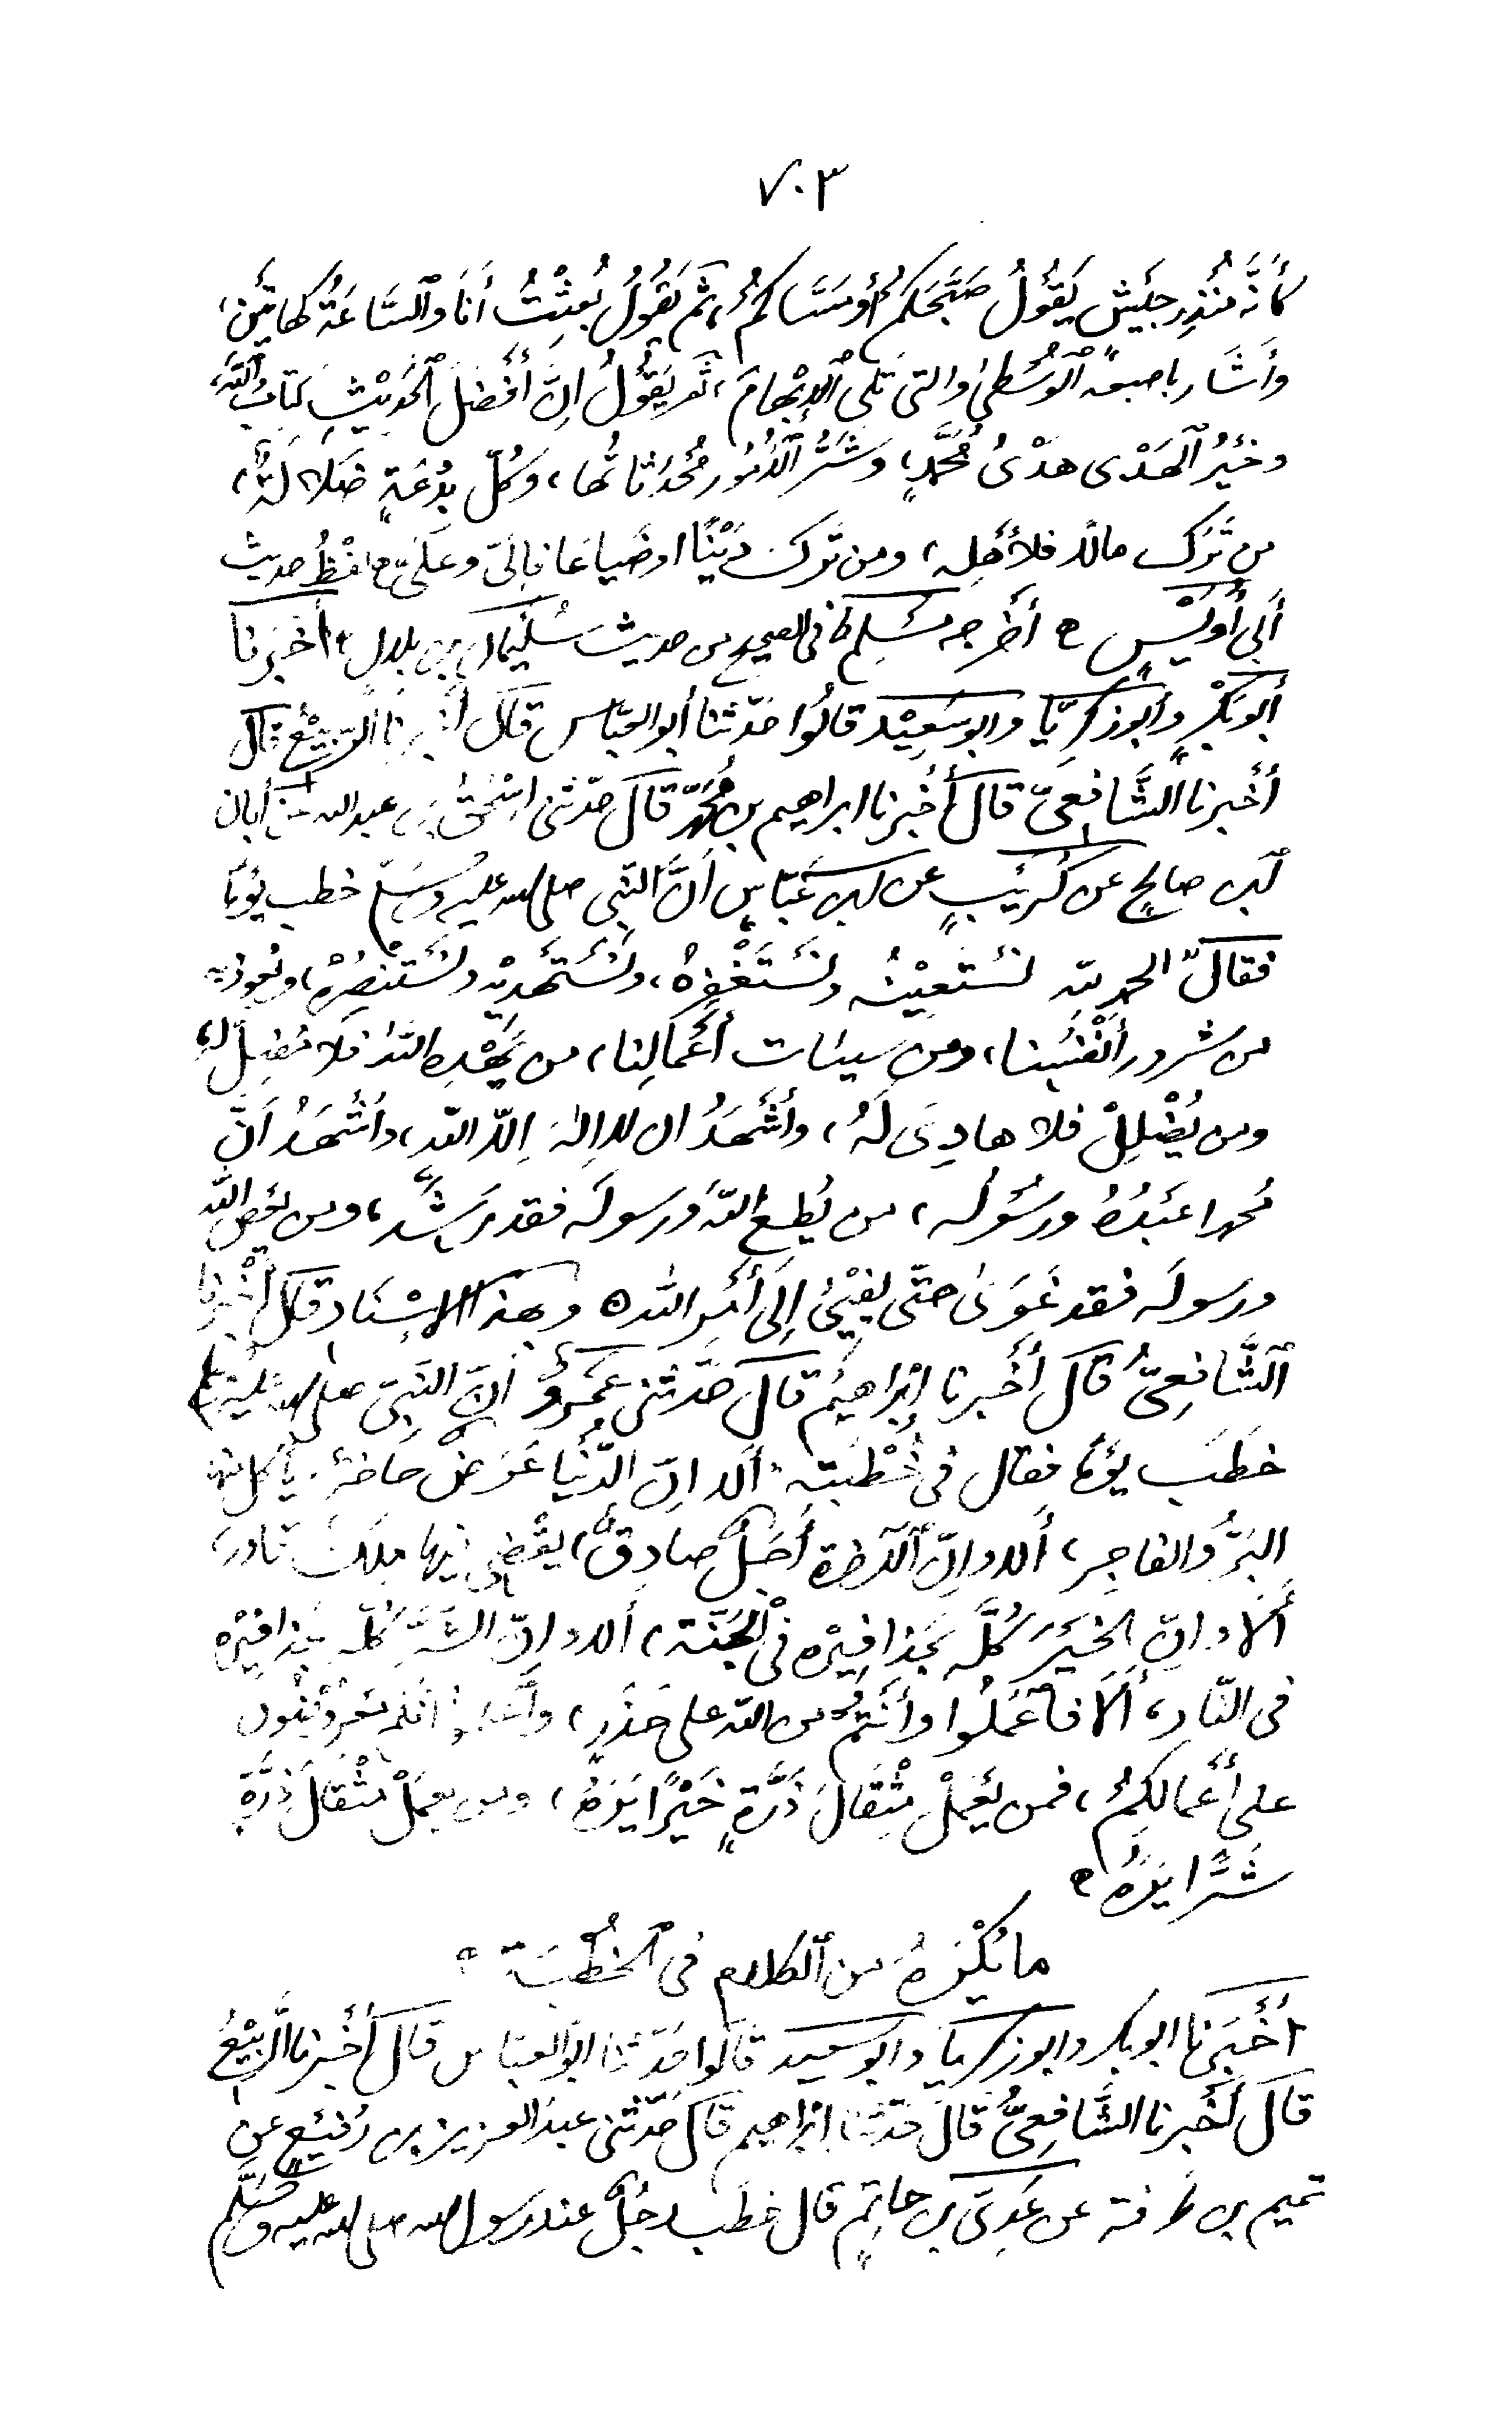 ٧٠٣
كأنّه مُنْذِر جيْش يَقُولُ صَبَّحَكُم أو مَسَّاكم، ثم يَقُولُ بُعِثْتُ أنَا وَٱلسَّاعَةُ كهاتين،
وأشَار باصبعه ٱلْوُسْطىٰ والتى تلى ٱلإِبْهَامَ، ثم يقُولُ إنّ أفْضَلَ ٱلحَدِيْثِ كتَابُ ٱللّهِ،
وخَيْرُ ٱلهَدْى هَدْىُ مُحَمَّدٍ، وشَرُّ ٱلأمُور مُحْدَثاتُها، وكُلّ بِدْعَةٍ ضَلالَةٌ،
من تَّرَك مالًا فلأهْلِه، ومن تَّرك دَيْنًا او ضَيَاعًا فإلىّ وعَلَىّ، لفْظُ حديث
أبى أُوَيْسٍ ه أخرجه مُسْلِم فى الصحيح من حديث سُلَيْمَان بن بلال ه أخبرنا
أبو بَكْرٍ وأبو زكريّا وابو سَعِيْد قالُوا حَدّثنا أبو العبّاس قالَ أخبرنا ٱلرَّبِيْعُ قال
أخْبرنا الشَّافِعىّ قال أخْبرنا ابراهيم بن مُحَمّد قالَ حدّثنى إسْحٰقُ بن عبد الله عن أبان
ٱبن صالحٍ عن كُرَيْبٍ عن ٱبن عَبّاسٍ أنَّ النّبى صلى الله عليه وسَلم خطب يوْمًا
فقالَ الحمد للّه نَسْتَعِيْنُه ونَسْتَغْفِرُهْ، ونَسْتَهْدِيْه ونَسْتَنْصِرُهْ، ونعوذ به
من شرور أنْفُسِنا، ومن سيئات أعْمَالِنا، من يَّهْدِه اللّهُ فلا مُضِلَّ لَه،
ومن يُضْلِلْ فلا هادِىَ لَهُ، وأشْهَدُ ان لا إلٰهَ إلّا اللّه، وأشْهَدُ أنّ
مُحمدا عَبْدُهُ ورسُولُه، من يُطِع اللّهَ ورسولَه فقد رَشَدَ، ومن يَعْصِ اللّه
ورسولَه فقد غَوَىٰ حتّى يفِيْئَ إلَى أمْرِ الله ه وبهذا الاسْنَاد قالَ أخْبرنا
ٱلشَّافِعِىُّ قال أخْبرنا إبْرَاهِيْمُ قال حَدَّثنى عَمْرٌو أنّ النَبِىّ صلى الله عليه وسلم
خطَبَ يَوْمًا فقال فى خُطْبَتِه، ألا إنّ الدُّنْيا عَرَضٌ حاضِرٌ، يأكل منه
البَرُّ والفاجِر، ألا وإنّ ٱلآخرة أجَلٌ صادِقٌ، يقْضِى فيها مَلِكٌ قادر،
ألا وإنّ الخَيْرَ كُلَّه بحَذافِيْرِه فى ٱلجَنّة، ألا وإنّ الشَّرَّ كُلَّه بحذافِيْرِه
فى النّار، ألَا فاعْمَلُوا وأنْتُم من اللّه على حَذَرٍ، وٱعْلَمُوا أنّكُم مَعْرُوْضُون
على أعْمالِكُم، فمن يَعْمَلْ مِثْقَالَ ذَرَّةٍ خَيْرًا يَرَهُ، ومن يعمَلْ مثْقَالَ ذَرَّةٍ
شَرًّا يَرَهُ ه
ما يُكْرَهُ من ٱلكلام فى ٱلخُطْبَة ه
أخْبَرَنا ابو بكر وابو زكريا وابو سعيد قالُوا حَدّثنا ابو العبّاس قال أخْبرنا ٱلرَّبِيْعُ
قالَ أخْبرنا الشَّافِعىُّ قالَ حَدّثنا ابْرَاهيم قال حَدّثنى عبد العزيز بن رُفَيْعٍ عن
تميم بن طرفة عن عَدِىّ بن حاتِمٍ قال خطَب رجُلٌ عند رسول الله صلى الله عليه وسَلَّم